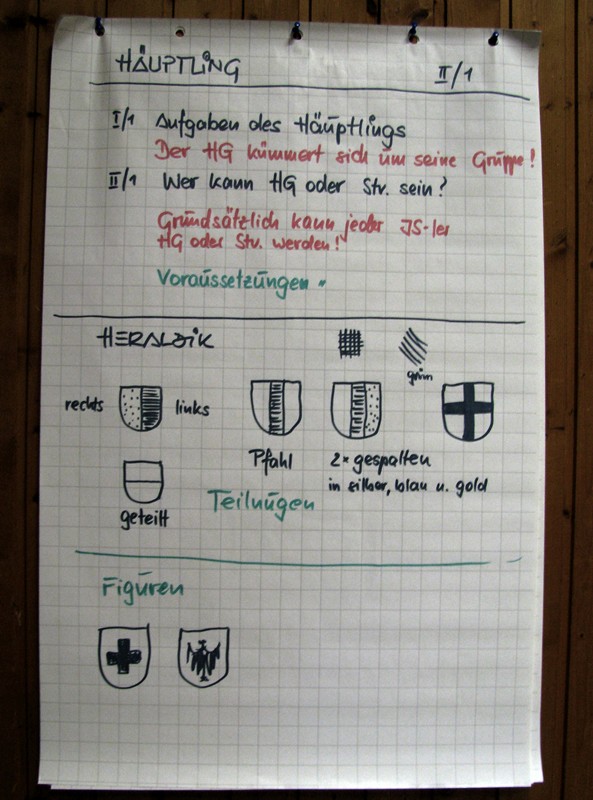 HÄUPTLING II/1
I/1 Aufgaben des Häuptlings
Der HG kümmert sich um seine Gruppe!
II/1 Wer kann HG oder Stv. sein?
Grundsätzlich kann jeder JS-ler
HG oder Stv. werden!
Voraussetzungen "
HERALDIK
grün
rechts links
Pfahl 2x gespalten
in silber, blau u. gold
geteilt Teilungen
Figuren